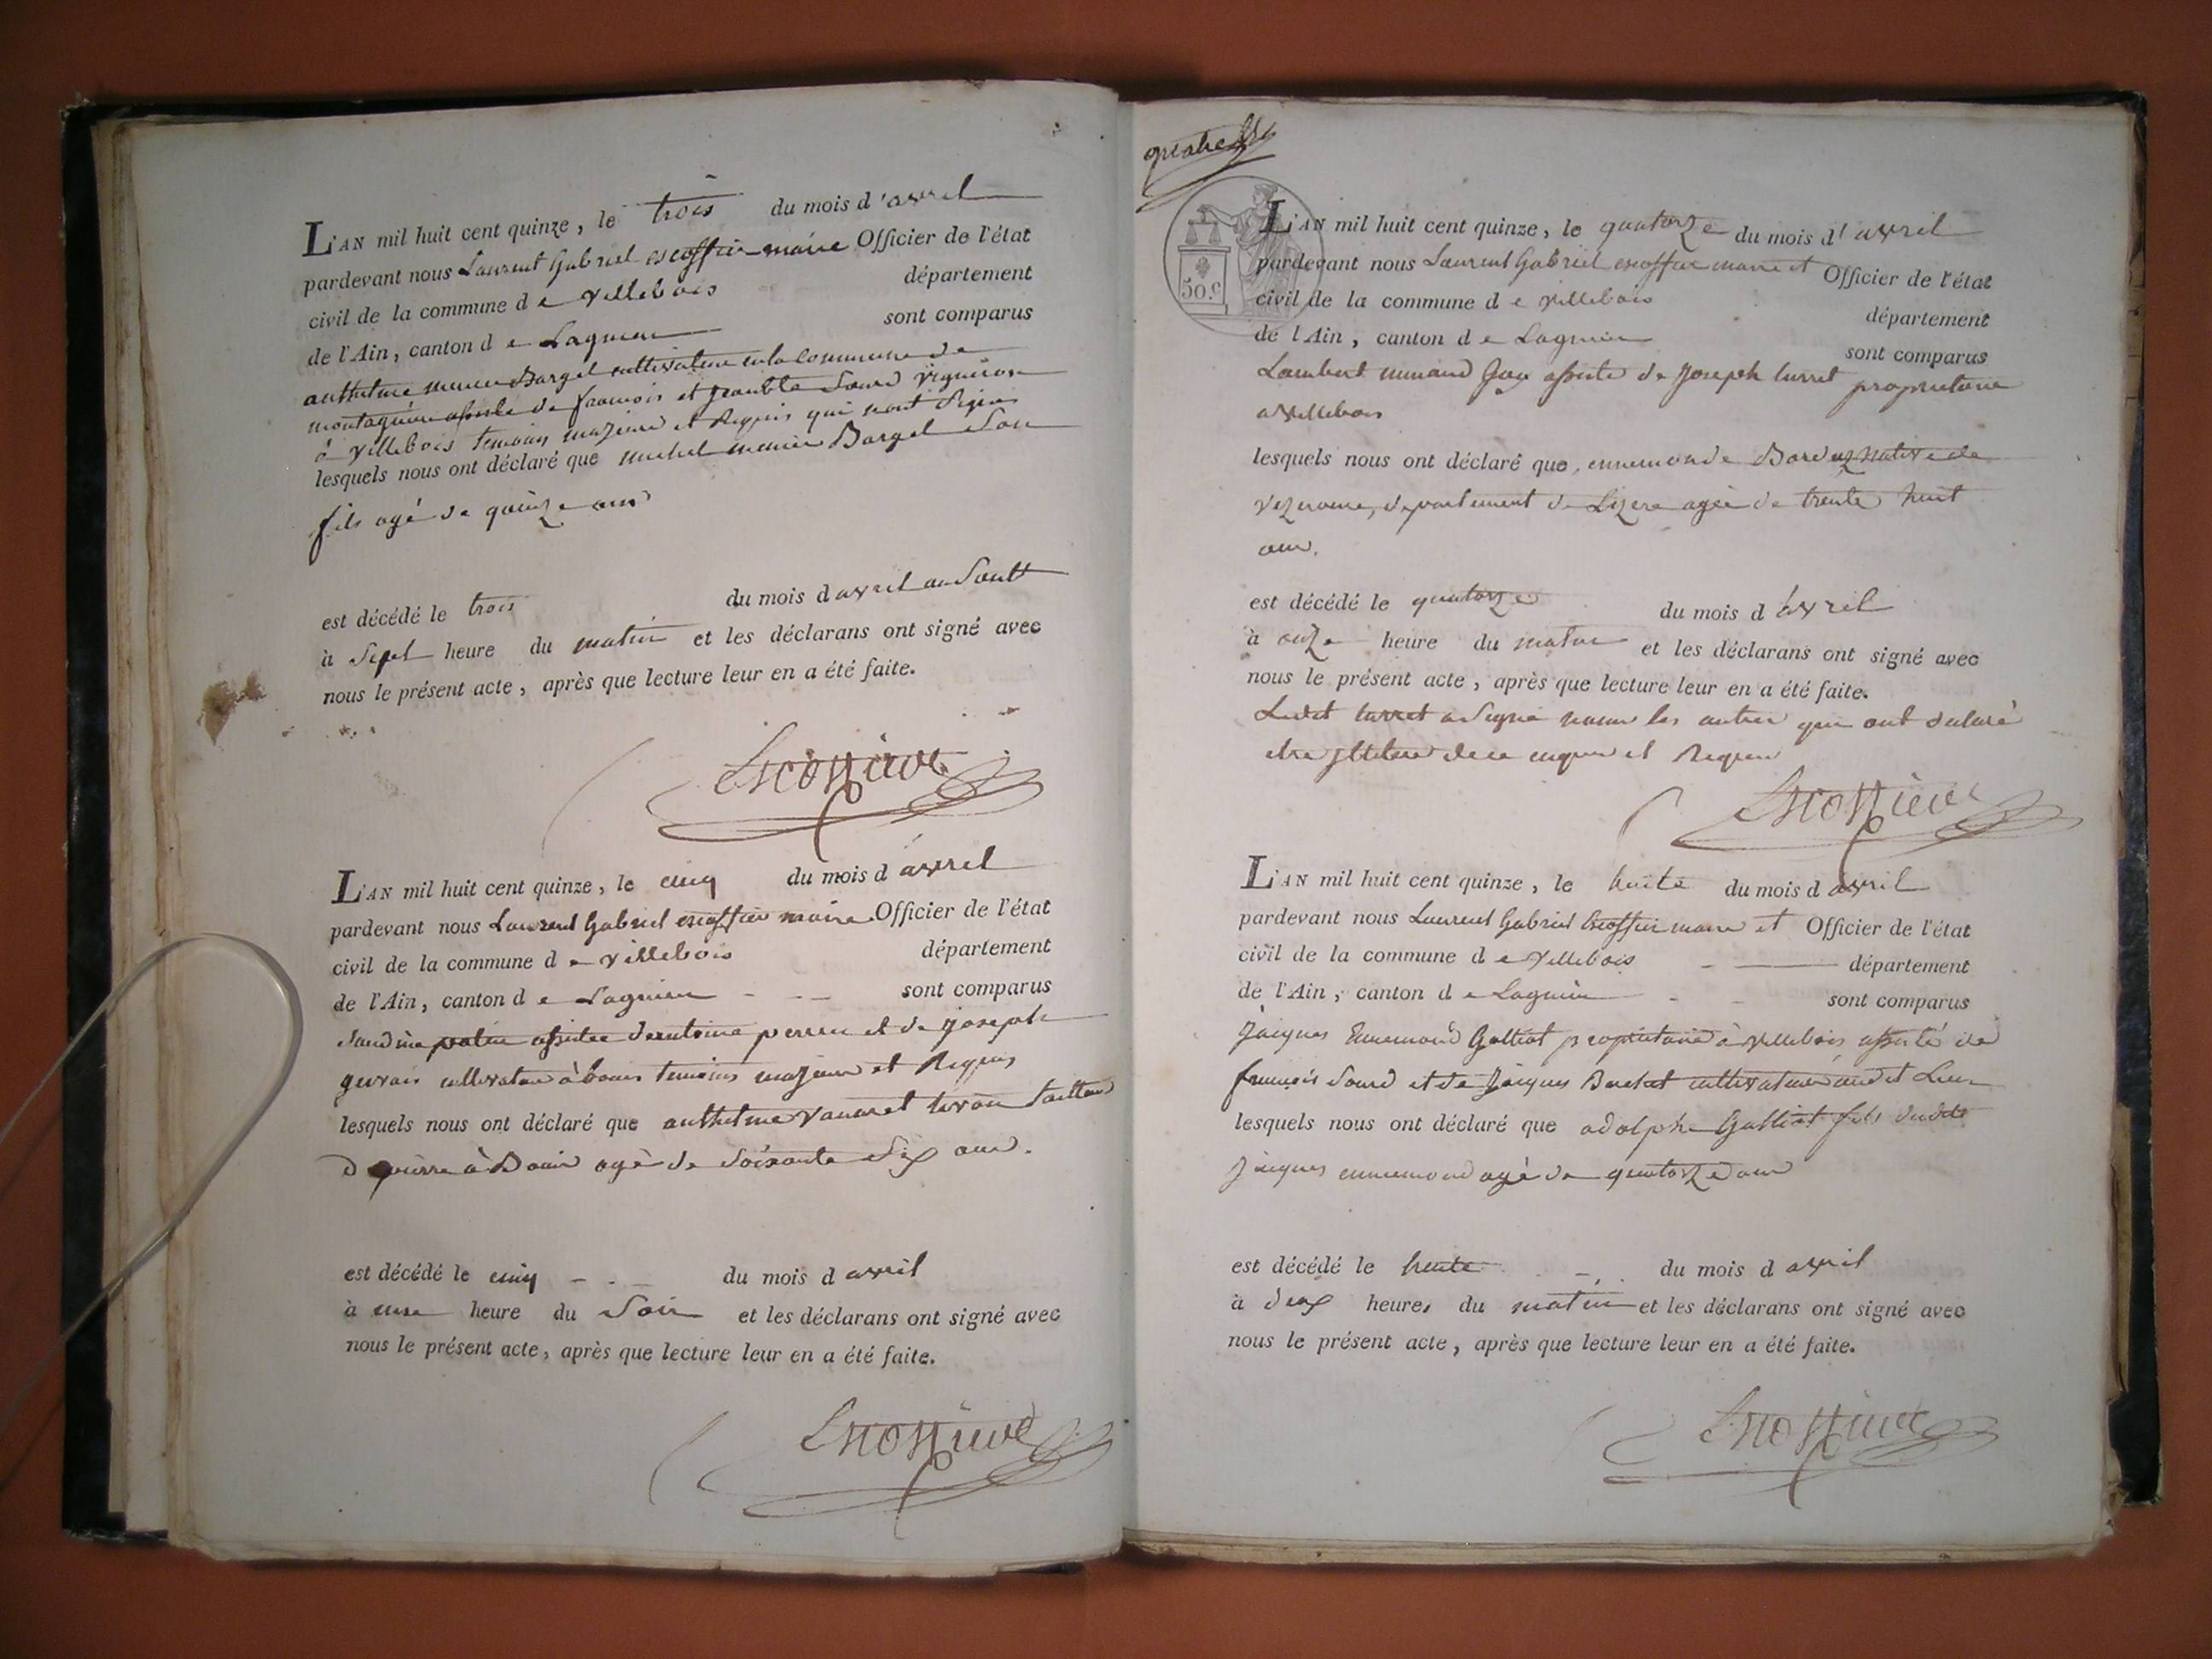 L'AN mil huit cent quinze, le trois du mois d'avril
pardevant nous Laurent Gabriel escoffier maire Officier de l'état
civil de la commune de villebois département
de l'Ain, canton de Lagnieu sont comparus
anthelme Bargel cultivateur en la commune de
montagnieu assisté de francois et Sourd vigneron
à villebois temoins majeurs et Requis qui n'ont signé
lesquels nous ont déclaré que michel Bargel son
fils agé de quinze ans
est décédé le trois du mois d avril au Soult
à Sept heure du matin et les déclarans ont signé avec
nous le présent acte, après que lecture leur en a été faite.
L'AN mil huit cent quinze, le cinq du mois d avril
pardevant nous Laurent Gabriel escoffier maire Officier de l'état
civil de la commune de villebois département
de l'Ain, canton de Lagnieu sont comparus
assistée perrin et de joseph
gervais cultivateur à temoins majeurs et Requis
lesquels nous ont déclaré que anthelme
pierre à agé de soixante Six ans.
est décédé le cinq du mois d avril
à une heure du Soir et les déclarans ont signé avec
nous le présent acte, après que lecture leur en a été faite.
quatre
50.c
L'AN mil huit cent quinze, le quatorze du mois d'avril
pardevant nous Laurent Gabriel escoffier maire et Officier de l'état
civil de la commune de villebois département
de l'Ain, canton de Lagnieu sont comparus
Lambert assisté de Joseph turret proprietaire
a villebois
lesquels nous ont déclaré que ennemonde native de
departement de Lizere agée de trente huit
ans.
est décédé le quatorze du mois d avril
à onze heure du matin et les déclarans ont signé avec
nous le présent acte, après que lecture leur en a été faite.
Ledit turret a signé non les autres qui ont declaré
de ce enquis et Requis
L'AN mil huit cent quinze, le trente du mois d avril
pardevant nous Laurent Gabriel Escoffier maire et Officier de l'état
civil de la commune de Villebois département
de l'Ain, canton de Lagnieu sont comparus
Jacques Ennemond Galliot proprietaire à villebois assisté de
francois Sourd et de Jacques cultivateurs audit Lieu
lesquels nous ont déclaré que adolphe Galliot fils dudit
Jacques ennemond agé de quatorze ans
est décédé le trente du mois d avril
à deux heures du matin et les déclarans ont signé avec
nous le présent acte, après que lecture leur en a été faite.